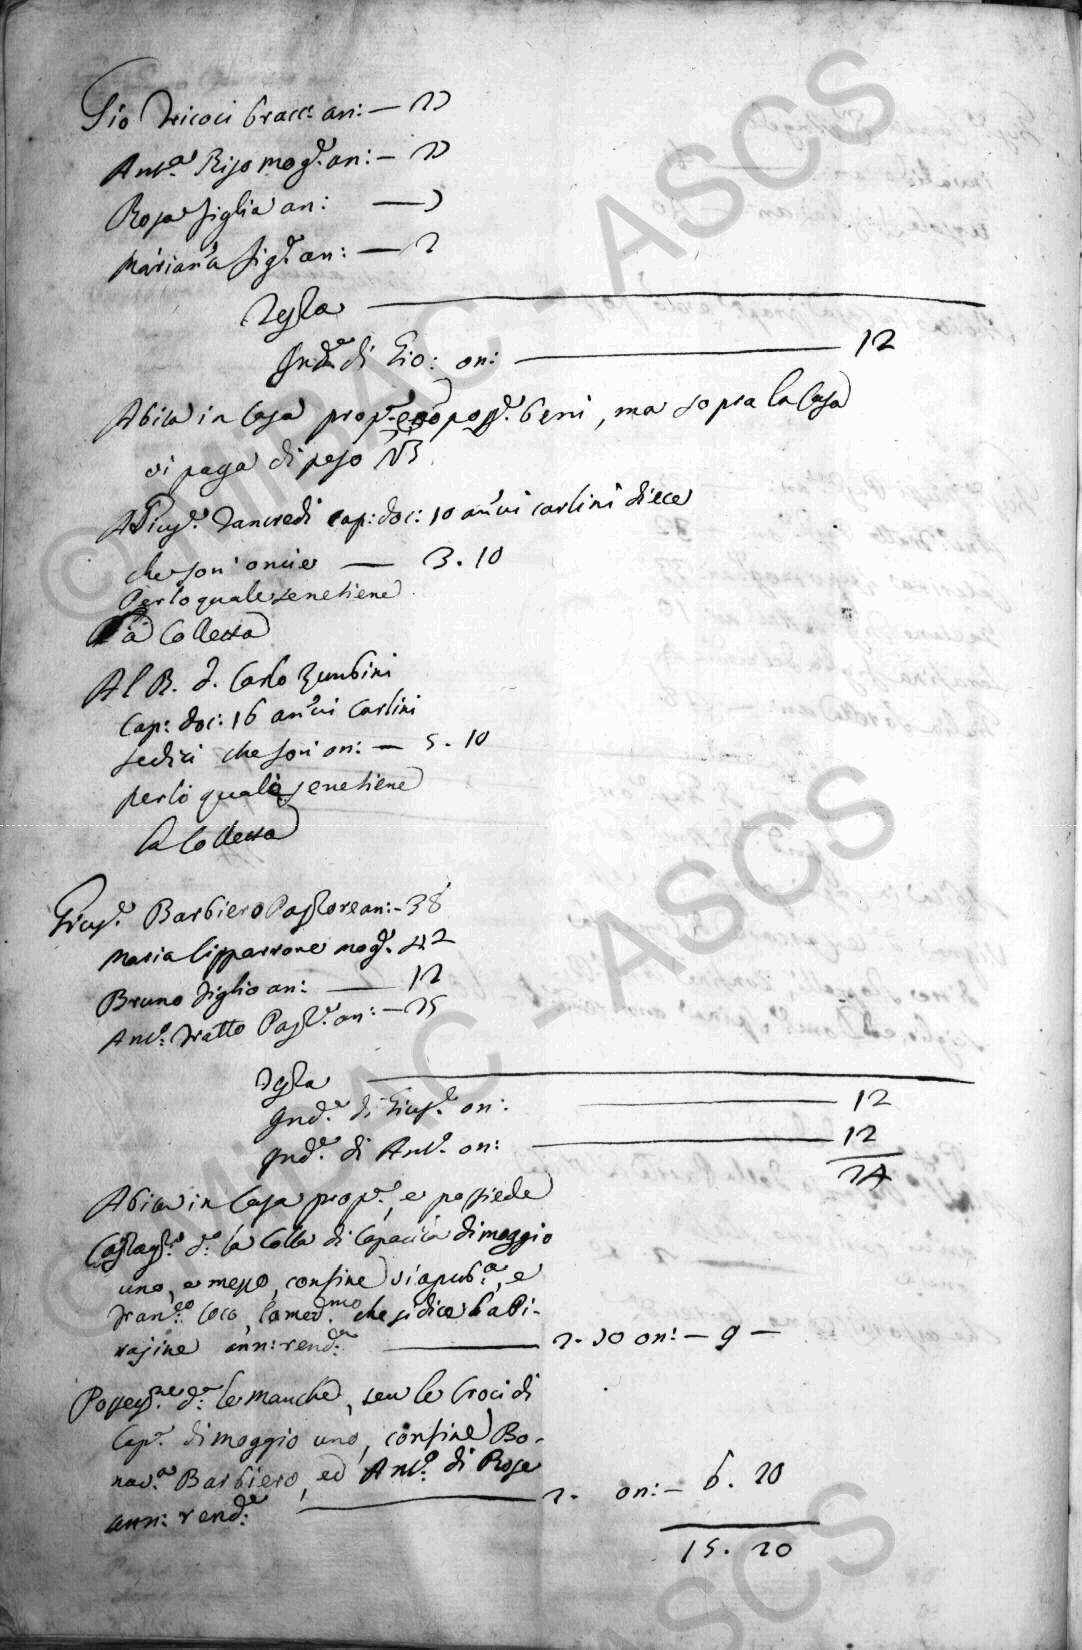 Gio Tricoci bracc.e an: — 23
Ant.a Riso mog.e an: — 23
Rosa figlia an: — 3
Marian'a fig.a an: — 2
Testa
Ind.a di Gio: on: — 12
Abita in casa prop.a e no poss.e beni, ma sopra la casa
vi paga di peso NB
A Gius.e Tancredi cap: doc: 10 an'ui carlini diece
che son' oncie — 3. 10
Per lo quale se ne tiene
la Colletta
Al R. D. Carlo Zumbini
Cap: doc: 16 an'ui carlini
sedici che son' on: — 5. 10
per lo quale se ne tiene
la Colletta
Gius.e Barbiero Pastore an: - 38
Maria Lipparrone mog.e 42
Bruno figlio an: — 12
Ant.o Tratto Past.e an: — 25
Testa
Ind.a di Gius.e on: — 12
Ind.a di Ant.o on: — 12
24
Abita in casa prop.a, e possiede
Castag.to d.o la Colla di capacità di moggio
uno, e mezzo, confine via pub.a, e
Fran.co Coco, la med.mo che si dice la Pi-
rajine ann: rend.a — 2. 30 on: — 9 —
Possess.ne d.a le manche, seu le Croci di
Cap.a di moggio uno, confine Bo-
nav.a Barbiero, ed Ant.o di Rose
ann: rend.a — 2. on: — 6. 20
15. 20
© MiBAC - ASCS
© MiBAC - ASCS
ASCS